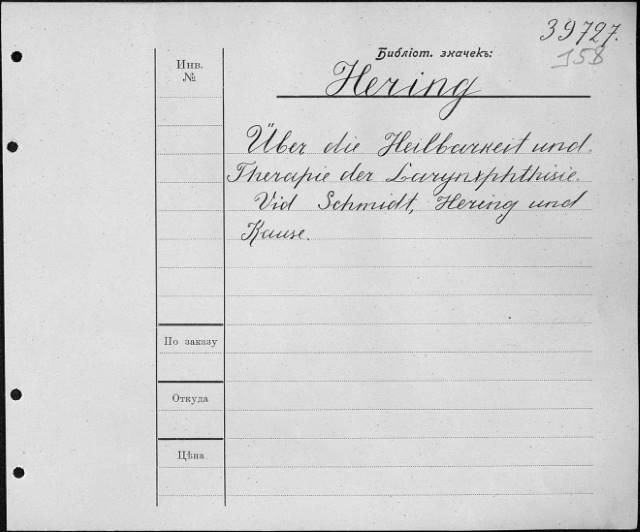 39727.
158
Библіот. значекъ:
Инв.
№
Hering
Über die Heilbarkeit und
Therapie der Larynxphthisie.
Vid Schmidt, Hering und
Kause.
По заказу
Откуда
Цѣна